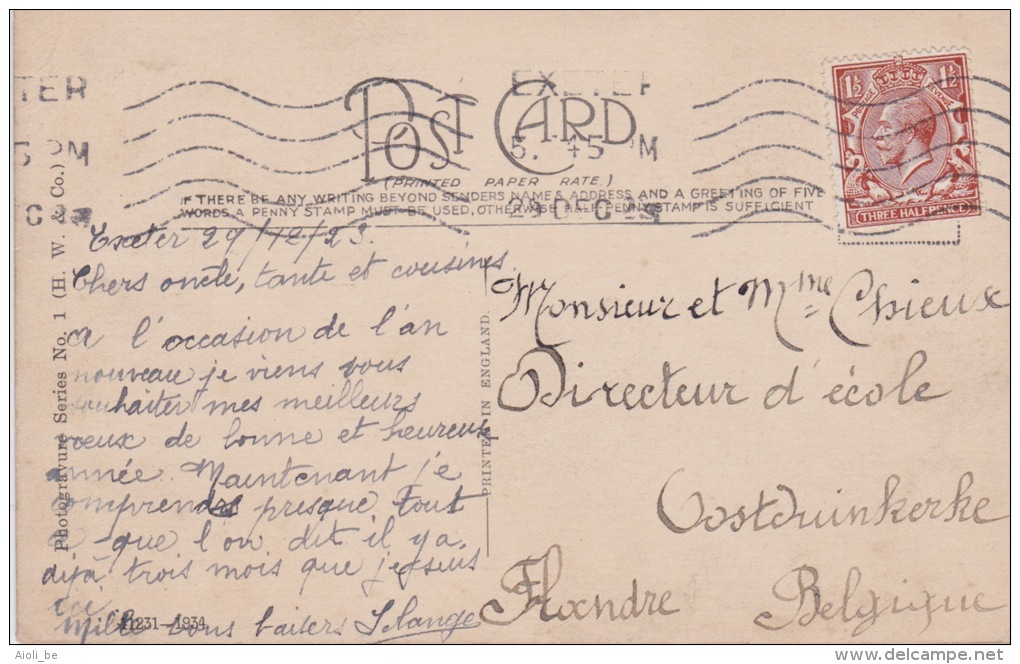 EXETER
TER
5. 45 PM
5 PM
29 DEC 23
POST CARD
(PRINTED PAPER RATE.)
IF THERE BE ANY WRITING BEYOND SENDERS NAME & ADDRESS AND A GREETING OF FIVE
WORDS A PENNY STAMP MUST BE USED, OTHERWISE HALF PENNY STAMP IS SUFFICIENT
1½ 1½
POSTAGE REVENUE
THREE HALFPENCE
Exeter 29/12/23.
Chers oncle, tante et cousines,
A l'occasion de l'an
nouveau je viens vous
souhaiter mes meilleurs
vœux de bonne et heureuse
année. Maintenant je
comprends presque tout
ce que l'on dit il y a
déjà trois mois que je suis
ici
Mille bons baisers
Monsieur et Mme Chieux
Directeur d'école
Oostduinkerke
Flandre Belgique
Photogravure Series No. 1 (H. W. & Co.)
PRINTED IN ENGLAND.
11231-1934
Aioli_be
www.delcampe.net